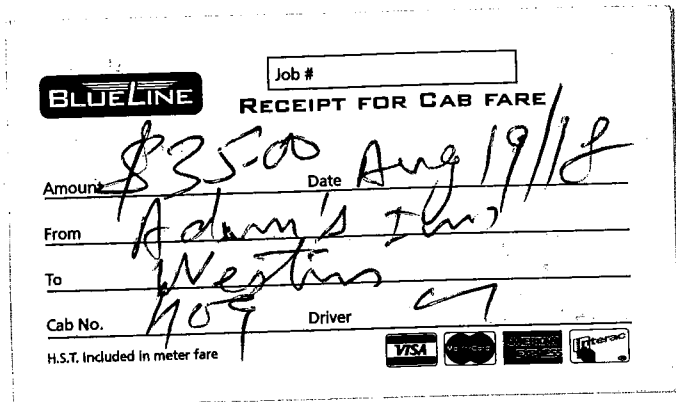 Job #
BLUELINE
RECEIPT FOR CAB FARE
Amount $35.00 Date Aug 19/18
From Adam's Inn
To Westin
Cab No. 409 Driver
H.S.T. Included in meter fare
VISA MasterCard AMERICAN EXPRESS Interac